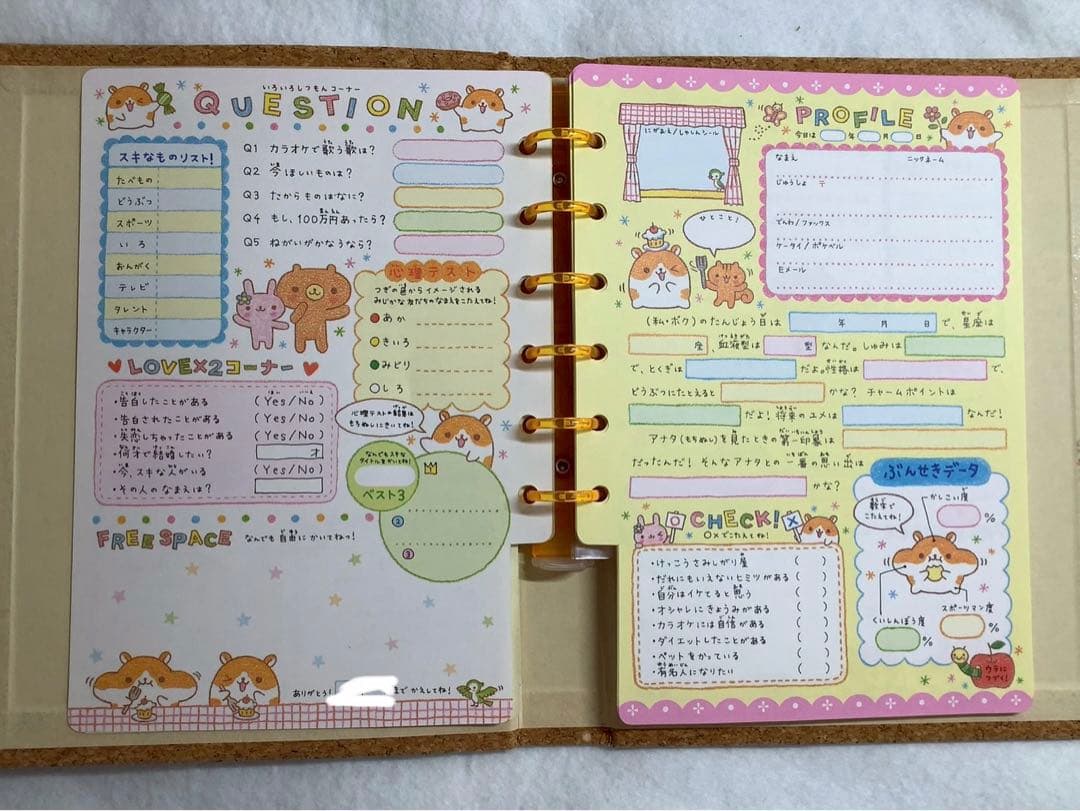 いろいろしつもんコーナー
QUESTION
スキなものリスト!
たべもの
どうぶつ
スポーツ
いろ
おんがく
テレビ
タレント
キャラクター
Q1 カラオケで歌う歌は?
Q2 今ほしいものは?
Q3 たからものはなに?
Q4 もし、100万円あったら?
Q5 ねがいがかなうなら?
心理テスト
つぎの色からイメージされる
みじかな友だちのなまえをこたえてね!
あか
きいろ
みどり
しろ
心理テストの結果は
もちぬしにきいてね!
LOVE×2コーナー
・告白したことがある (Yes/No)
・告白されたことがある (Yes/No)
・失恋しちゃったことがある (Yes/No)
・何才で結婚したい? 才
・今、スキな人がいる (Yes/No)
・その人のなまえは?
なんでもスキな
タイトルをかいてね!
ベスト3
②
③
FREE SPACE なんでも自由にかいてねっ!
ありがとう! までかえしてね!
PROFILE
今日は 年 月 日
にがおえ/しゃしんシール
ひとこと!
なまえ ニックネーム
じゅうしょ 〒
でんわ/ファックス
ケータイ/ポケベル
Eメール
(私・ボク)のたんじょう日は 年 月 日で、星座は
座、血液型は 型なんだ。しゅみは
で、とくぎは だよ。性格は で、
どうぶつにたとえると かな? チャームポイントは
だよ!将来のユメは なんだ!
アナタ(もちぬし)を見たときの第一印象は
だったんだ! そんなアナタとの一番の思い出は
かな?
CHECK!
○×でこたえてね!
・けっこうさみしがり屋 ( )
・だれにもいえないヒミツがある ( )
・自分はイケてると思う ( )
・オシャレにきょうみがある ( )
・カラオケには自信がある ( )
・ダイエットしたことがある ( )
・ペットをかっている ( )
・有名人になりたい ( )
ぶんせきデータ
数字で
こたえてね!
かしこい度
%
くいしんぼう度
%
スポーツマン度
%
ウラに
つづく!